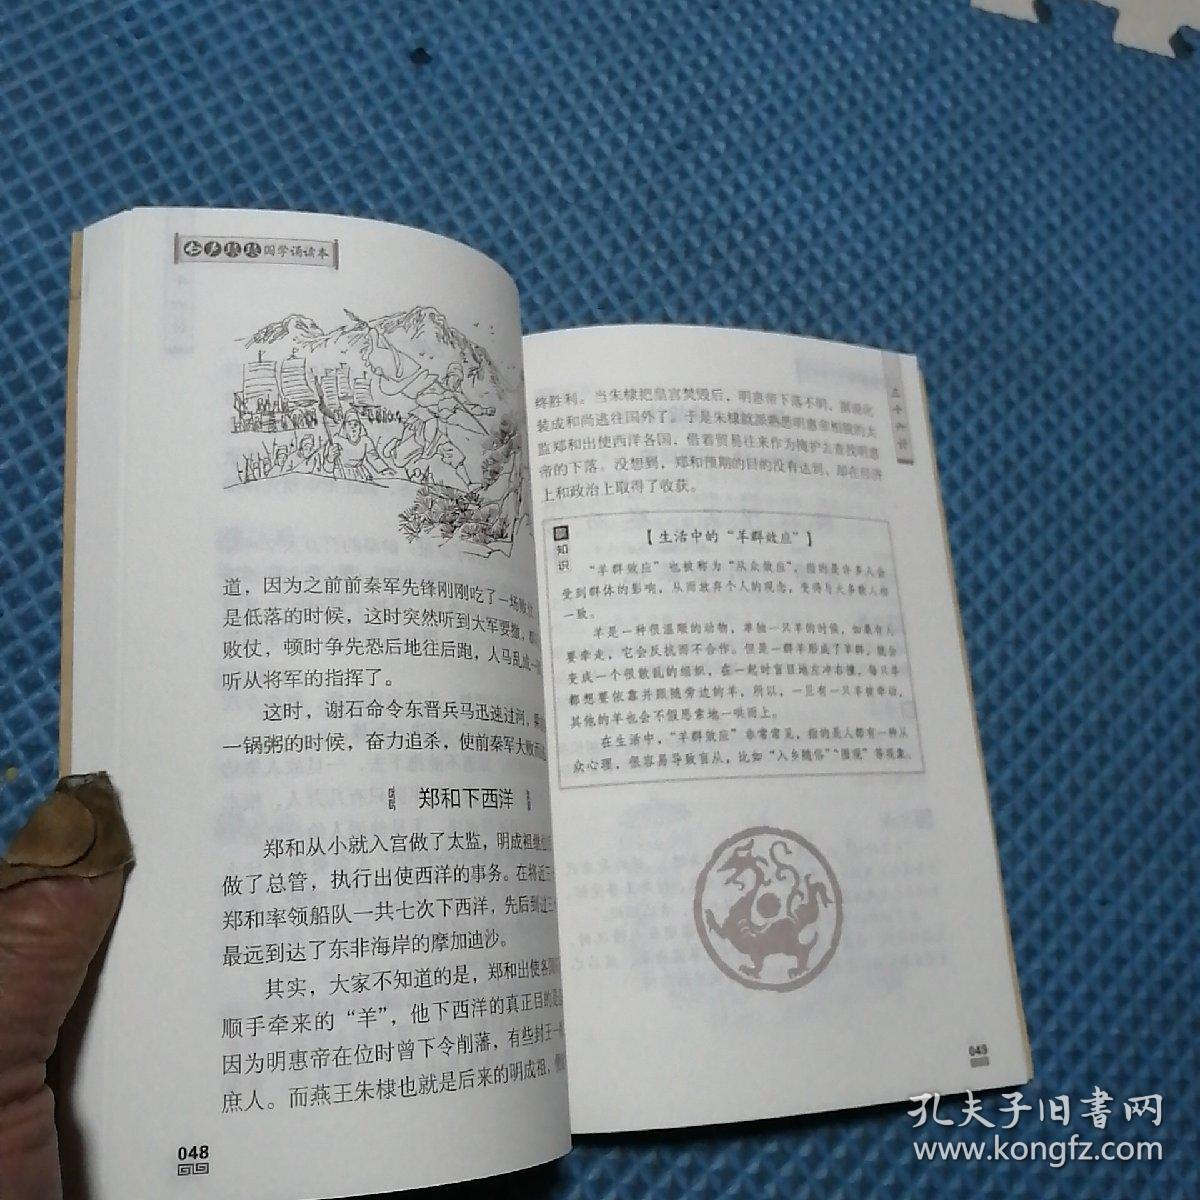 国学诵读本
道，因为之前前秦军先锋刚刚吃了一场败
是低落的时候，这时突然听到大军要撤，
败仗，顿时争先恐后地往后跑，人马乱成一
听从将军的指挥了。
这时，谢石命令东晋兵马迅速过河，
一锅粥的时候，奋力追杀，使前秦军大败而
郑和下西洋
郑和从小就入宫做了太监，明成祖继
做了总管，执行出使西洋的事务。在将近三
郑和率领船队一共七次下西洋，先后到过三
最远到达了东非海岸的摩加迪沙。
其实，大家不知道的是，郑和出使各
顺手牵来的“羊”，他下西洋的真正目的是
因为明惠帝在位时曾下令削藩，有些封王一
庶人。而燕王朱棣也就是后来的明成祖，
048
三十六计
终胜利。当朱棣把皇宫焚毁后，明惠帝下落不明，据说化
装成和尚逃往国外了。于是朱棣就派熟悉明惠帝相貌的太
监郑和出使西洋各国，借着贸易往来作为掩护去查找明惠
帝的下落。没想到，郑和预期的目的没有达到，却在经济
上和政治上取得了收获。
知识
【生活中的“羊群效应”】
“羊群效应”也被称为“从众效应”，指的是许多人会
受到群体的影响，从而放弃个人的观念，变得与大多数人相
一致。
羊是一种很温顺的动物，单独一只羊的时候，如果有人
要牵走，它会反抗而不合作。但是一群羊形成了羊群，就会
变成一个很散乱的组织，在一起时盲目地左冲右撞，每只羊
都想要依靠并跟随旁边的羊，所以，一旦有一只羊被牵动，
其他的羊也会不假思索地一哄而上。
在生活中，“羊群效应”非常常见，指的是人都有一种从
众心理，很容易导致盲从，比如“入乡随俗”“围观”等现象。
049
孔夫子旧书网
www.kongfz.com